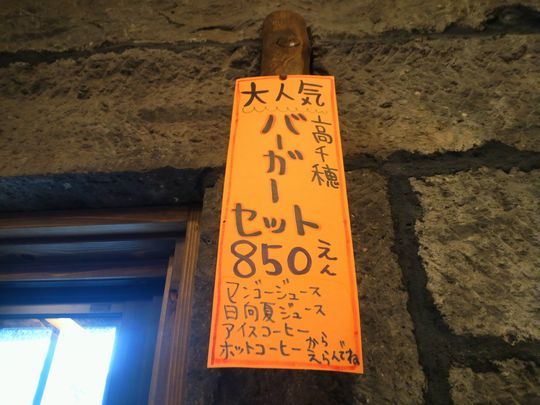 大人気
高千穂
バーガー
セット
850えん
マンゴージュース
日向夏ジュース
アイスコーヒー
ホットコーヒー
から
えらんでね